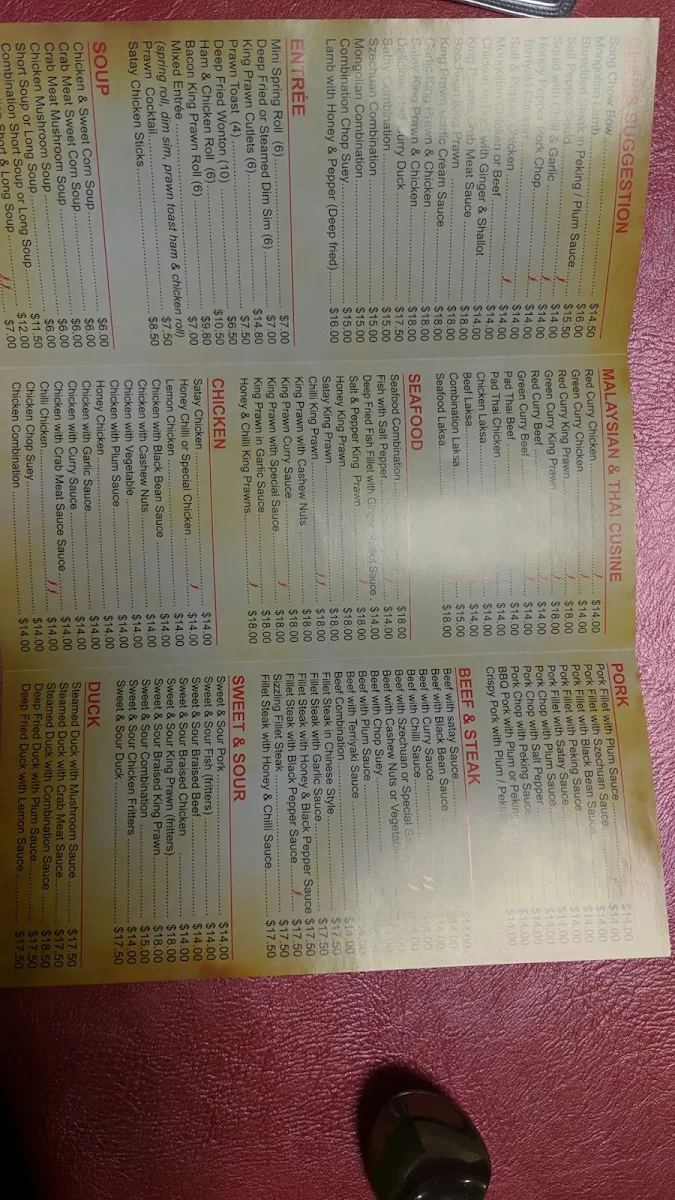 SUGGESTION
$14.50
Peking / Plum Sauce $16.00
$15.50
& Garlic $14.00
Pork Chop $14.00
$14.00
or Beef $14.00
with Ginger & Shallot $14.00
Crab Meat Sauce $18.00
Prawn $18.00
King Garlic Cream Sauce $18.00
King Prawn & Chicken $18.00
King Prawn & Chicken $18.00
Curry Duck $17.50
Combination $15.00
Szechuan Combination $15.00
Mongolian Combination $15.00
Combination Chop Suey $15.00
Lamb with Honey & Pepper (Deep fried) $16.00
ENTRÉE
Mini Spring Roll (6) $7.00
Deep Fried or Steamed Dim Sim (6) $7.00
King Prawn Cutlets (6) $14.80
Prawn Toast (4) $7.50
Deep Fried Wonton (10) $6.50
Ham & Chicken Roll (6) $10.50
Bacon King Prawn Roll (6) $9.80
Mixed Entrée $7.00
(spring roll, dim sim, prawn toast ham & chicken roll)
Prawn Cocktail $7.50
Satay Chicken Sticks $8.50
SOUP
Chicken & Sweet Corn Soup $6.00
Crab Meat Sweet Corn Soup $6.00
Crab Meat Mushroom Soup $6.00
Chicken Mushroom Soup $6.00
Short Soup or Long Soup $11.50
Short Soup or Long Soup $12.00
Combination Short & Long Soup $7.00
MALAYSIAN & THAI CUSINE
Red Curry Chicken $14.00
Green Curry Chicken $14.00
Red Curry King Prawn $18.00
Green Curry King Prawn $18.00
Red Curry Beef $14.00
Green Curry Beef $14.00
Pad Thai Beef $14.00
Pad Thai Chicken $14.00
Chicken Laksa $14.00
Beef Laksa $14.00
Combination Laksa $15.00
Seafood Laksa $18.00
SEAFOOD
Seafood Combination $18.00
Fish with Salt Pepper $14.00
Deep Fried Fish Fillet with Ginger Shallot Sauce $14.00
Salt & Pepper King Prawn $18.00
Honey King Prawn $18.00
Satay King Prawn $18.00
Chilli King Prawn $18.00
King Prawn with Cashew Nuts $18.00
King Prawn Curry Sauce $18.00
King Prawn with Special Sauce $18.00
King Prawn in Garlic Sauce $18.00
Honey & Chilli King Prawns $18.00
CHICKEN
Satay Chicken $14.00
Honey Chilli or Special Chicken $14.00
Lemon Chicken $14.00
Chicken with Black Bean Sauce $14.00
Chicken with Cashew Nuts $14.00
Chicken with Vegetable $14.00
Chicken with Plum Sauce $14.00
Honey Chicken $14.00
Chicken with Garlic Sauce $14.00
Chicken with Curry Sauce $14.00
Chicken with Crab Meat Sauce Sauce $14.00
Chilli Chicken $14.00
Chicken Chop Suey $14.00
Chicken Combination $14.00
PORK
Pork Fillet with Plum Sauce $14.00
Pork Fillet with Szechuan Sauce
Pork Fillet with Black Bean Sauce
Pork Fillet with Peking Sauce
Pork Fillet with Satay Sauce
Pork Chop with Plum Sauce
Pork Chop with Salt Pepper
Pork Chop with Peking Sauce
BBQ Pork with Plum or Peking
Crispy Pork with Plum / Peking
BEEF & STEAK
Beef with satay Sauce
Beef with Black Bean Sauce
Beef with Curry Sauce
Beef with Chilli Sauce
Beef with Szechuan or Special
Beef with Cashew Nuts or Vegetable
Beef with Chop Suey
Beef with Plum Sauce
Beef with Terriyaki Sauce
Beef Combination $14.00
Fillet Steak in Chinese Style $17.50
Fillet Steak with Garlic Sauce $17.50
Fillet Steak with Honey & Black Pepper Sauce $17.50
Fillet Steak with Black Pepper Sauce $17.50
Sizzling Fillet Steak $17.50
Fillet Steak with Honey & Chilli Sauce $17.50
SWEET & SOUR
Sweet & Sour Pork $14.00
Sweet & Sour Fish (fritters) $14.00
Sweet & Sour Braised Beef $14.00
Sweet & Sour Braised Chicken $14.00
Sweet & Sour King Prawn (fritters) $18.00
Sweet & Sour Braised King Prawn $18.00
Sweet & Sour Combination $15.00
Sweet & Sour Chicken Fritters $14.00
Sweet & Sour Duck $17.50
DUCK
Steamed Duck with Mushroom Sauce $17.50
Steamed Duck with Crab Meat Sauce $17.50
Steamed Duck with Combination Sauce $18.50
Deep Fried Duck with Plum Sauce $17.50
Deep Fried Duck with Lemon Sauce $17.50